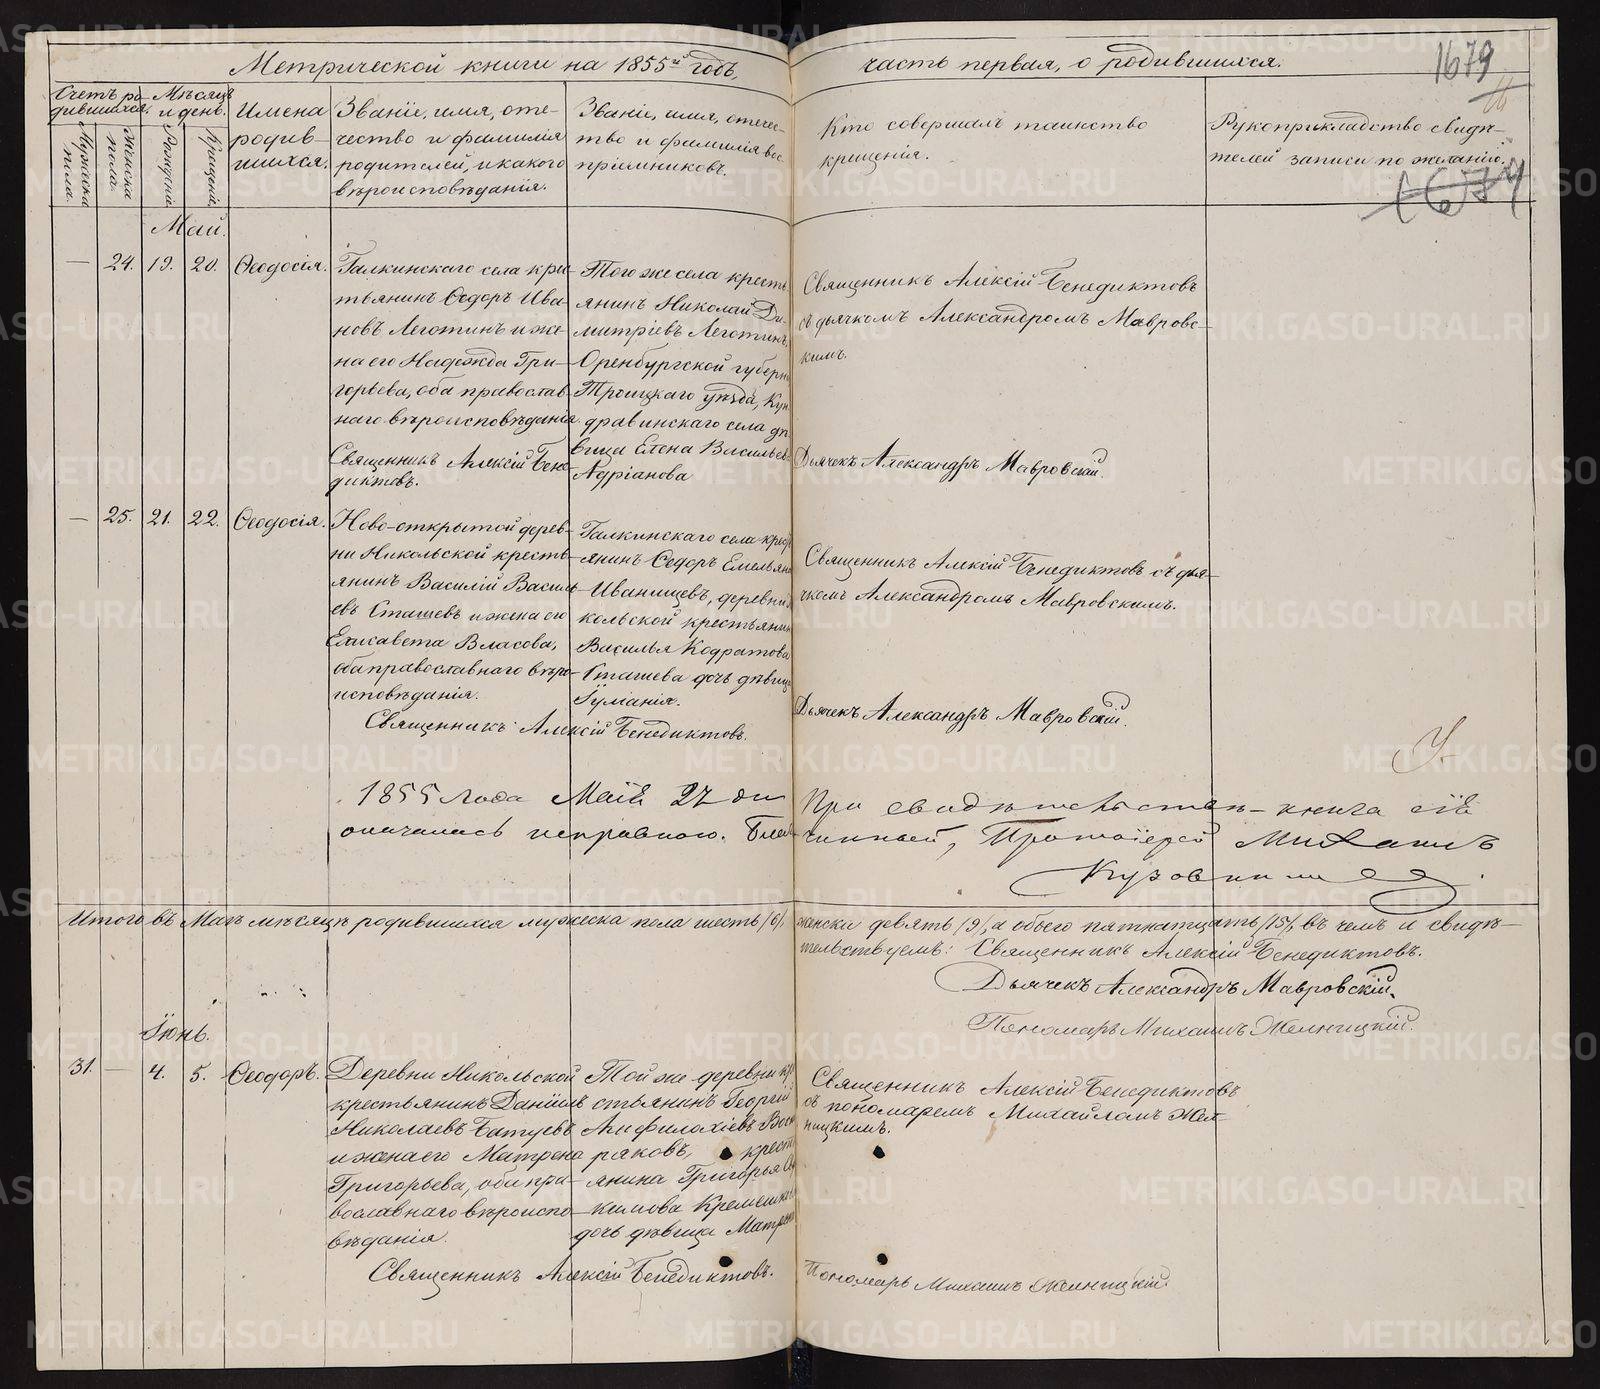 Метрической книги на 1855й годъ,
часть первая, о родившихся.
1679
Счетъ ро-
дившихся.
Мужеска
пола.
Женска
пола.
Мѣсяцъ
и день.
Рожденія
Крещенія
Имена
родив-
шихся.
Званіе, имя, оте-
чество и фамилія
родителей, и какого
вѣроисповѣданія.
Званіе, имя, отече-
тво и фамилія вос-
пріемниковъ.
Кто совершалъ таинство
крещенія.
Рукоприкладство свидѣ-
телей записи по желанію.
1674
Май.
— 24. 19. 20. Ѳеодосія.
Талкинскаго села кре-
стьянинъ Ѳедоръ Ива-
новъ Леготинъ и же-
на его Надежда Гри-
горьева, оба православ-
наго вѣроисповѣданія
Священникъ Алексій Бене-
диктовъ.
Того же села кресть
янинъ Николай Ди-
митріевъ Леготинъ,
Оренбургской губерн
Троицкаго уѣзда, Кун
дравинскаго села дѣ
вица Елена Васильев
Адріанова
Священникъ Алексій Бенедиктовъ
съ дьячкомъ Александромъ Мавровс-
кимъ.
Дьячекъ Александръ Мавровскій.
— 25. 21. 22. Ѳеодосія.
Ново-открытой дерев-
ни Никольской кресть-
янинъ Василій Василь-
евъ Сташевъ и жена его
Елисавета Власова,
оба православнаго вѣро-
исповѣданія.
Священникъ Алексій Бенедиктовъ.
Талкинскаго села крест
янинъ Ѳедоръ Емельяно
Иванищевъ, деревни
кольской крестьянин
Василья Кодратова
Сташева дочь дѣвица
Іуліанія.
Священникъ Алексій Бенедиктовъ съ дья-
чкомъ Александромъ Мавровскимъ.
Дьячекъ Александръ Мавровскій.
1855 Года Маія 27 дня При свидѣтельствѣ - книга сія
оказалась исправною. Благочинный, Протоіерей Михаилъ
Итого въ Маѣ мѣсяцѣ родившихся мужеска пола шесть /6/, женска девять /9/, а обоего пятнатцать /15/, въ чемъ и свидѣ-
тельствуемъ: Священникъ Алексій Бенедиктовъ.
Дьячекъ Александръ Мавровскій.
Пономарь Михаилъ Желницкій.
Іюнь.
31. — 4. 5. Ѳеодоръ.
Деревни Никольской
крестьянинъ Даніилъ
Николаевъ Батуевъ
и жена его Матрена
Григорьева, оба пра-
вославнаго вѣроиспо-
вѣданія.
Священникъ Алексій Бенедиктовъ.
Той же деревни кре
стьянинъ Георгій
Амфилохіевъ Вост
ряковъ, крест
янина Григорья
кимова Кремешк
дочь дѣвица Матрен
Священникъ Алексій Бенедиктовъ
съ пономаремъ Михайломъ Жел-
ницкимъ.
Пономарь Михаилъ Желницкій.
METRIKI.GASO-URAL.RU